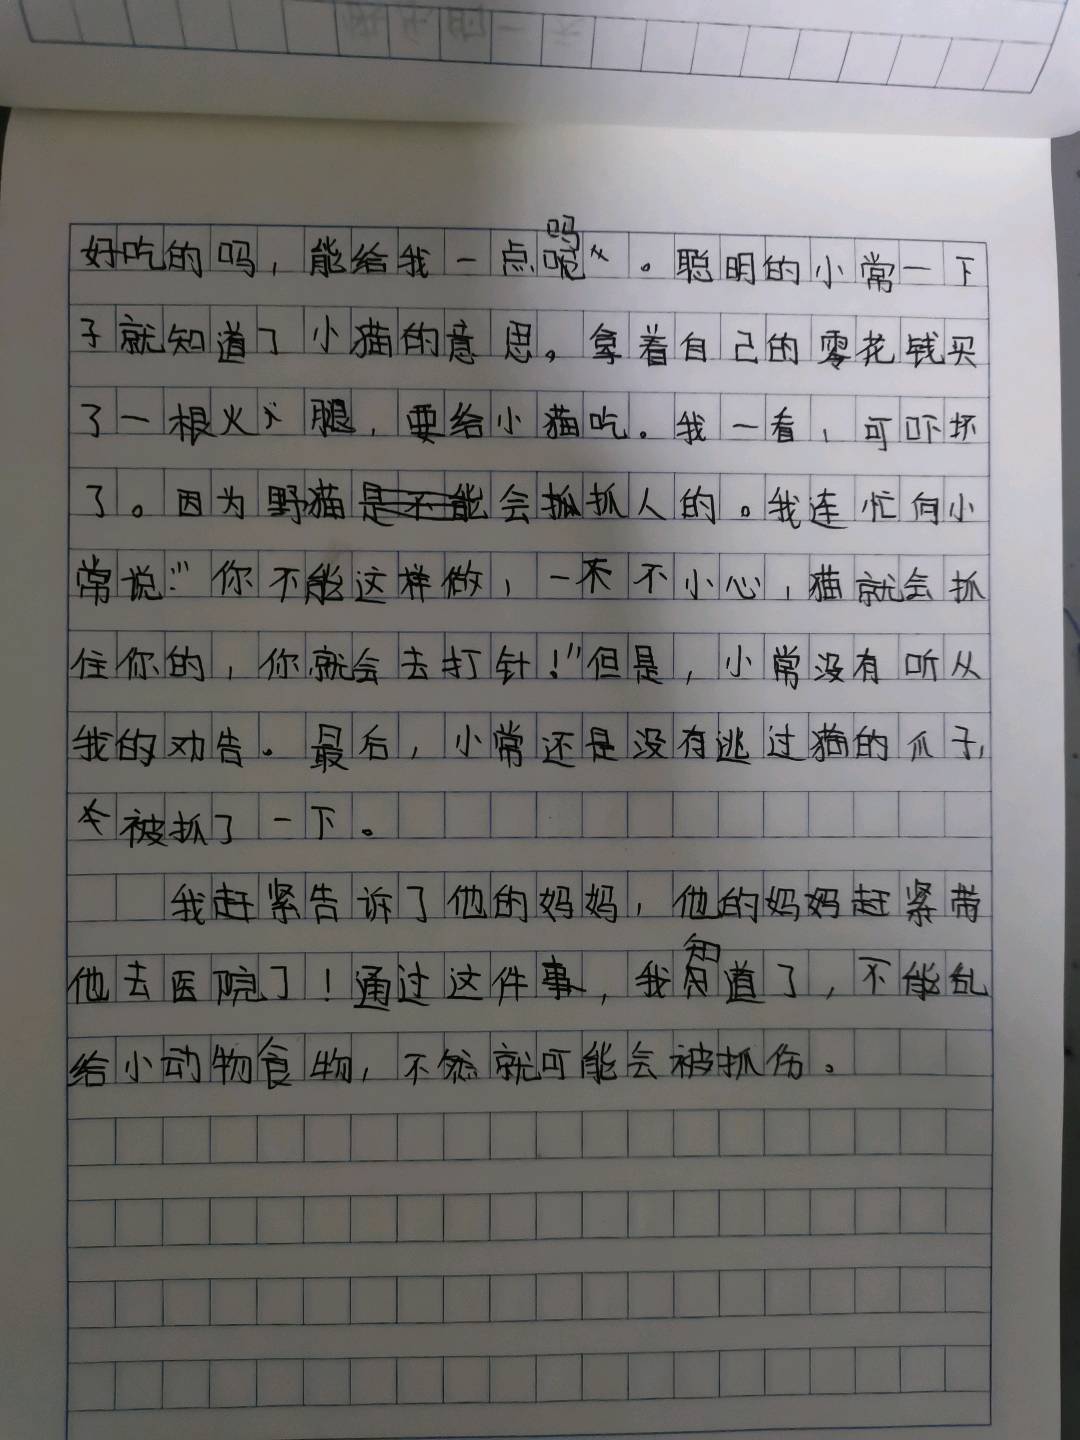 好吃的吗，能给我一点吗。聪明的小常一下
子就知道了小猫的意思。拿着自己的零花钱买
了一根火腿，要给小猫吃。我一看，可吓坏
了。因为野猫会抓抓人的。我连忙向小
常说：“你不能这样做，一不不小心，猫就会抓
住你的，你就会去打针！”但是，小常没有听从
我的劝告。最后，小常还是没有逃过猫的爪子，
被抓了一下。
我赶紧告诉了他的妈妈，他的妈妈赶紧带
他去医院了！通过这件事，我知道了，不能乱
给小动物食物，不然就可能会被抓伤。